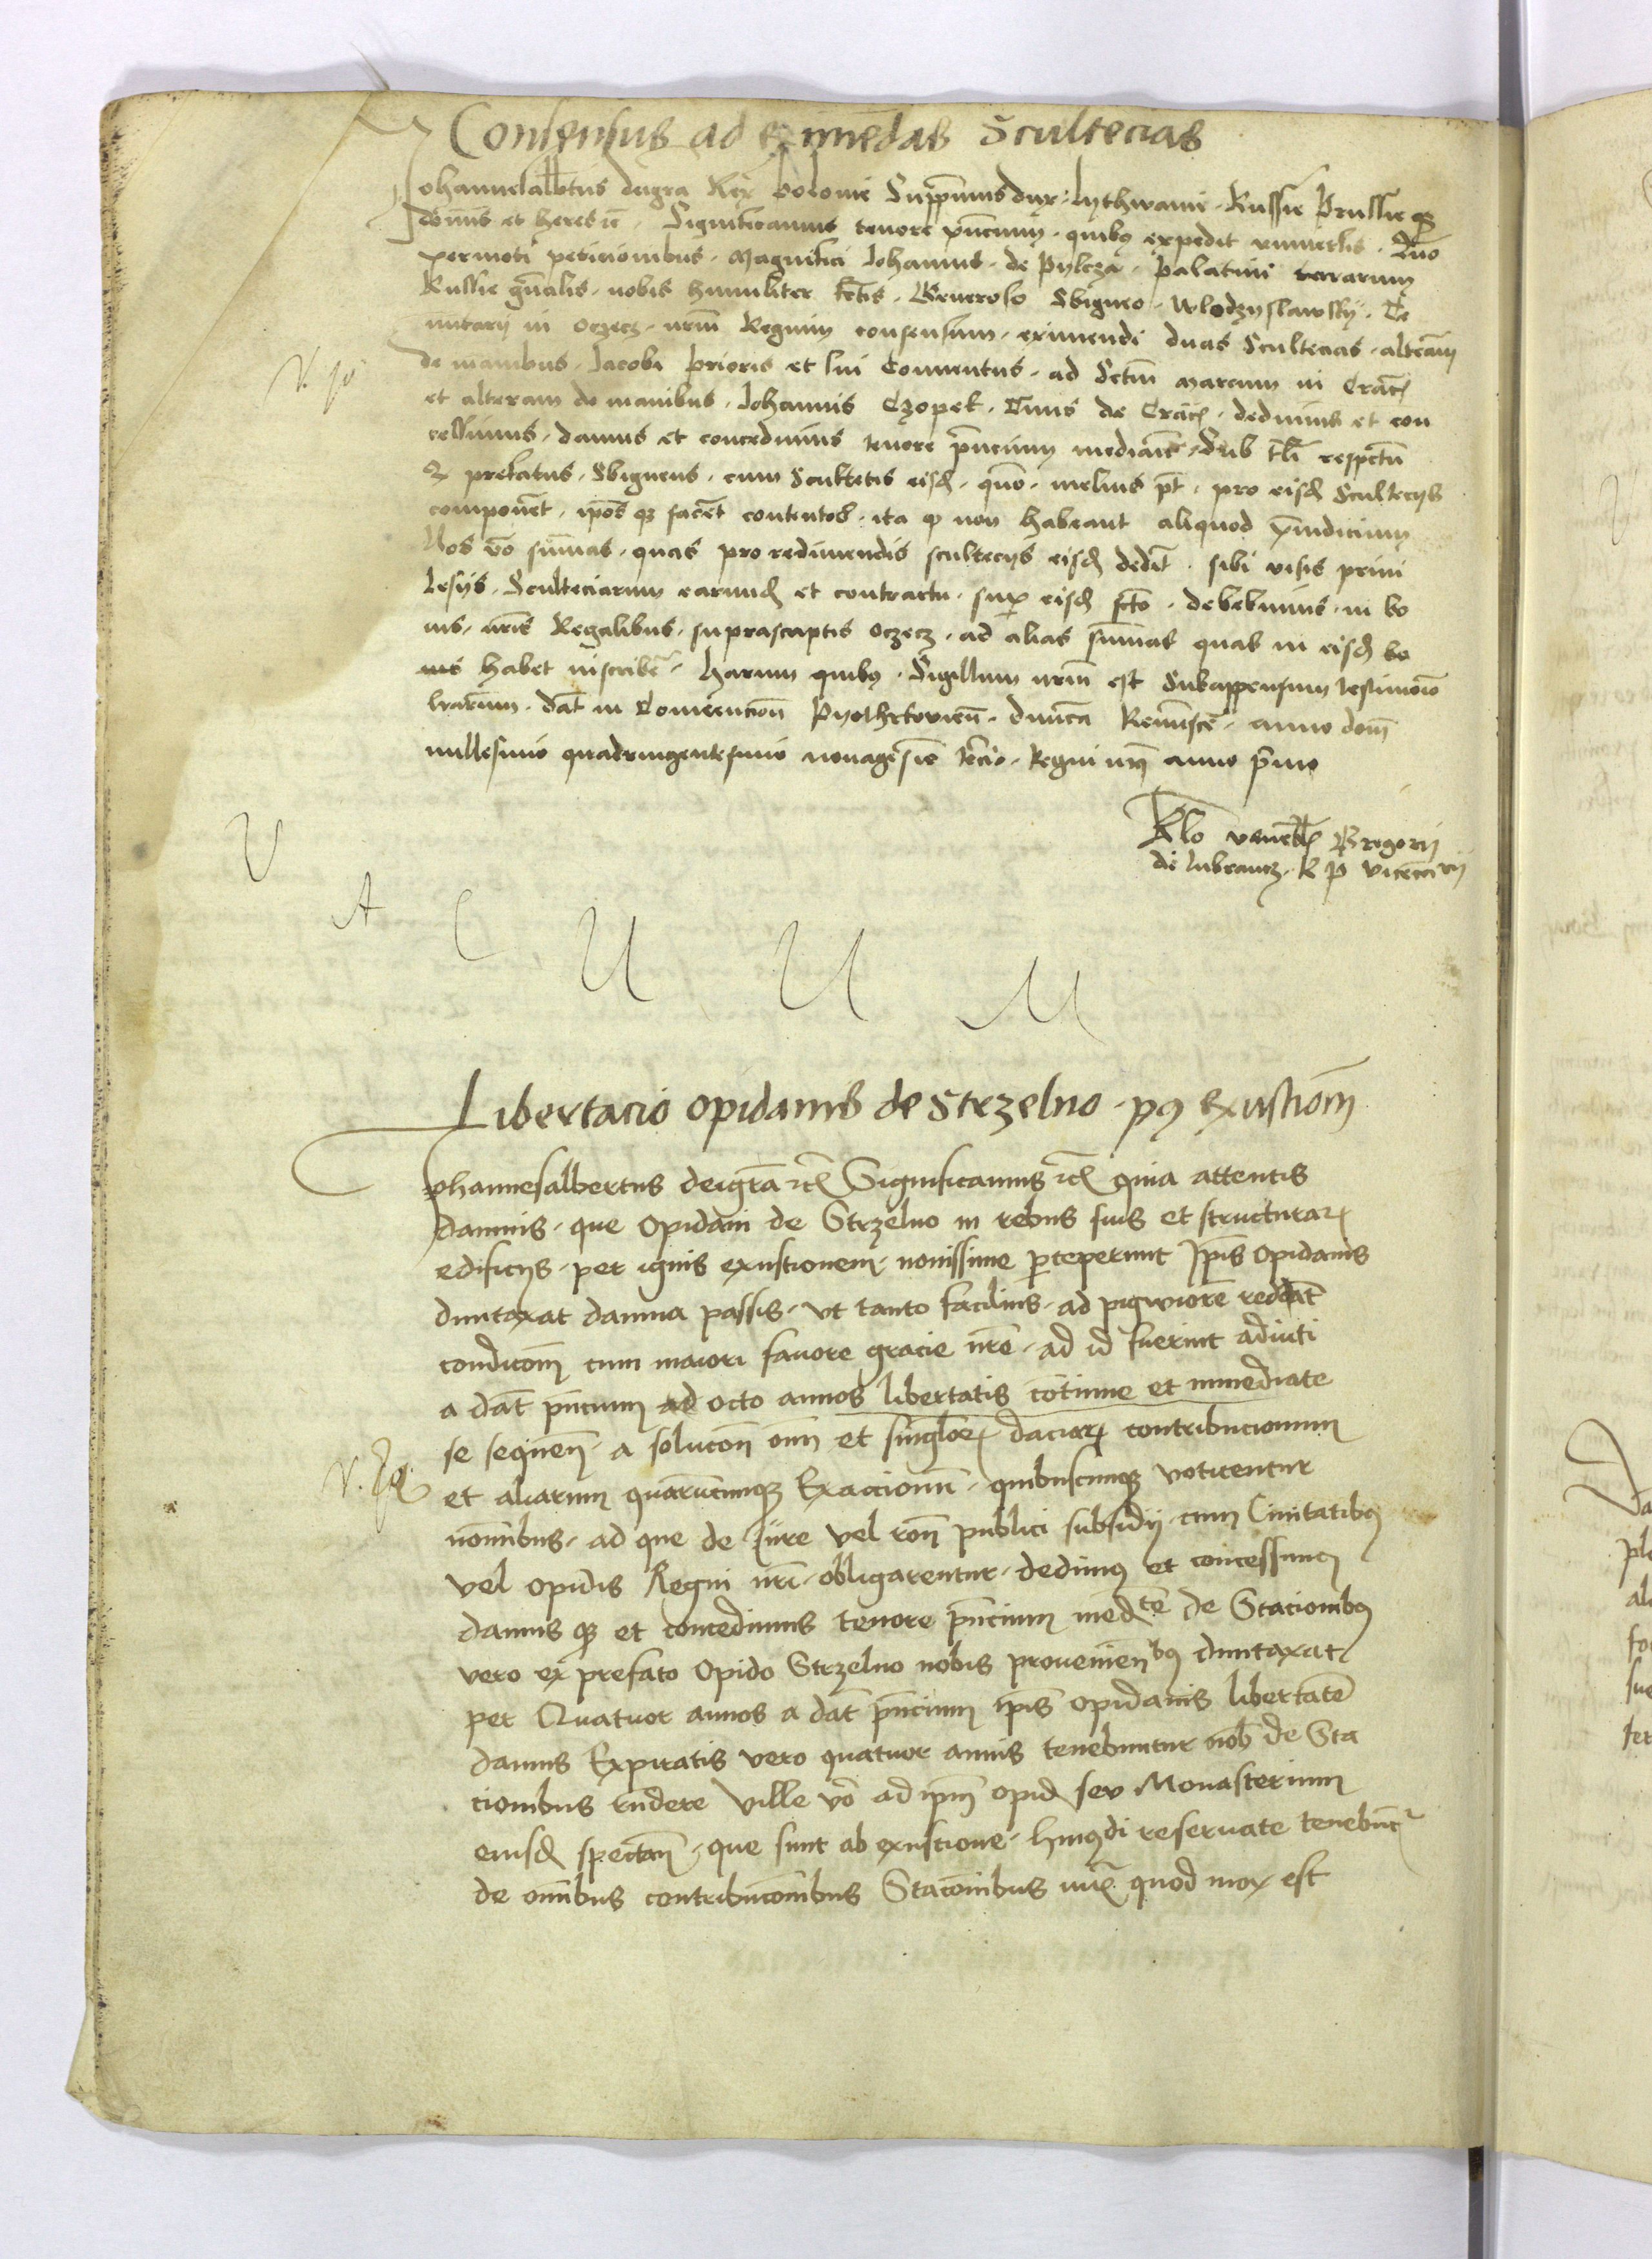 Consensus ad eximēdas Scultecias
Johannesalbertus dei gra Rex Polonie Suppremus dux Lythwanie Russie Prussie qȝ
dominus et heres etc. Significamus tenore pñcium quibꝰ expedit universis Quō
permoti peticionibus Magnifici Johannis de Pylcza Palatini terrarum
Russie gñalis nobis humiliter fctis Generoso Sbigneo Wlodzyslawsky Te
nutarij in Oczecz nrm̄ Regium consensum eximendi duas Scultecias alterām
de manibus Jacobi prioris et sui Conventus ad Sctm̄ Marcum in Crac̄
et alteram de manibus Johannis Czopek Civis de Crac̄ dedimus et con
cessimus damus et concedimus tenore pñcium mediantē Sub tli respectu
qꝫ prefatus Sbigneus cum Scultetis eisd̄ quō melius pt pro eisd̄ Scultecijs
componet ipōs qȝ faciet contentos ita qꝫ non habeant aliquod piudicium
Nos vō sum̄as quas pro redimendis scultecijs eisd̄ dedit sibi visis privi
lesijs Sculteciarum earund̄ et contractu sup eisd̄ fcto debebimus in bo
nis nris Regalibus suprascriptis Oczecz ad alias sum̄as quas in eisd̄ bo
nis habet inscribē Harum quibꝰ Sigillum nrm̄ est Subappensum testimonio
lrarum Dat in Convencion Pyothrkovien̄ Dnica Reminiscē anno dom̄
millesimo quadringentesimo nonagesio tercio Regni nrī anno primo
Rlo venerabil̄ Gregorij
de Lubrancz R P Vicecancīj
V. Jo
V A C U U M
Libertacio opidanis de Strzelno pꝰ exustiom̄
Johannesalbertus dei gra etc̄ Significamus etc̄ quia attentis
damnis que Opidani de Strzelno in rebus suis et structurar̄
edificijs per ignis exustionem novissime pceperunt Ipis Opidanis
duntaxat damna passis Vt tanto facilius ad pigwiorē reddant
condicōm cum maiori favore gracie nrē ad id fuerint adiuti
a dat pñcium ad octo annos libertatis cōtinue et immediate
se sequen̄ a solucōn om̄ et singlor̄ daciar̄ contribucionum
et aliarum quarūcumqȝ Exaccionū quibuscumqȝ voticentur
nominibus ad que de Iure vel rōn publici subsidij cum Civitatibꝰ
V. Jo
vel opidis Regni nrī obligarentur dedimꝰ et concessimꝰ
damus qȝ et concedimus tenore pñcium medtē de Stacionibꝰ
vero ex prefato Opido Strzelno nobis provenienbꝰ duntaxat
per Quatuor annos a dat pñcium ipis opidanis libertatē
damus Expiratis vero quatuor annis tenebuntur nob̄ de Sta
cionibus rñdere Ville vō ad ipm̄ opid̄ seu Monasterium
eiusd̄ spectan̄ que sunt ab exustione hmꝰdi reservate tenebunt̄
de omībus contribucōnibus Stacōnibus iux̄ quod mox est